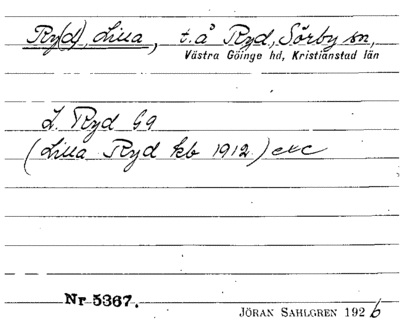 Ry(d), Lilla, t.å Ryd, Sörby sn,
Västra Göinge hd, Kristianstad län
L. Ryd G9
(Lilla Ryd kb 1912) etc
Nr 5367.
JÖRAN SAHLGREN 1926